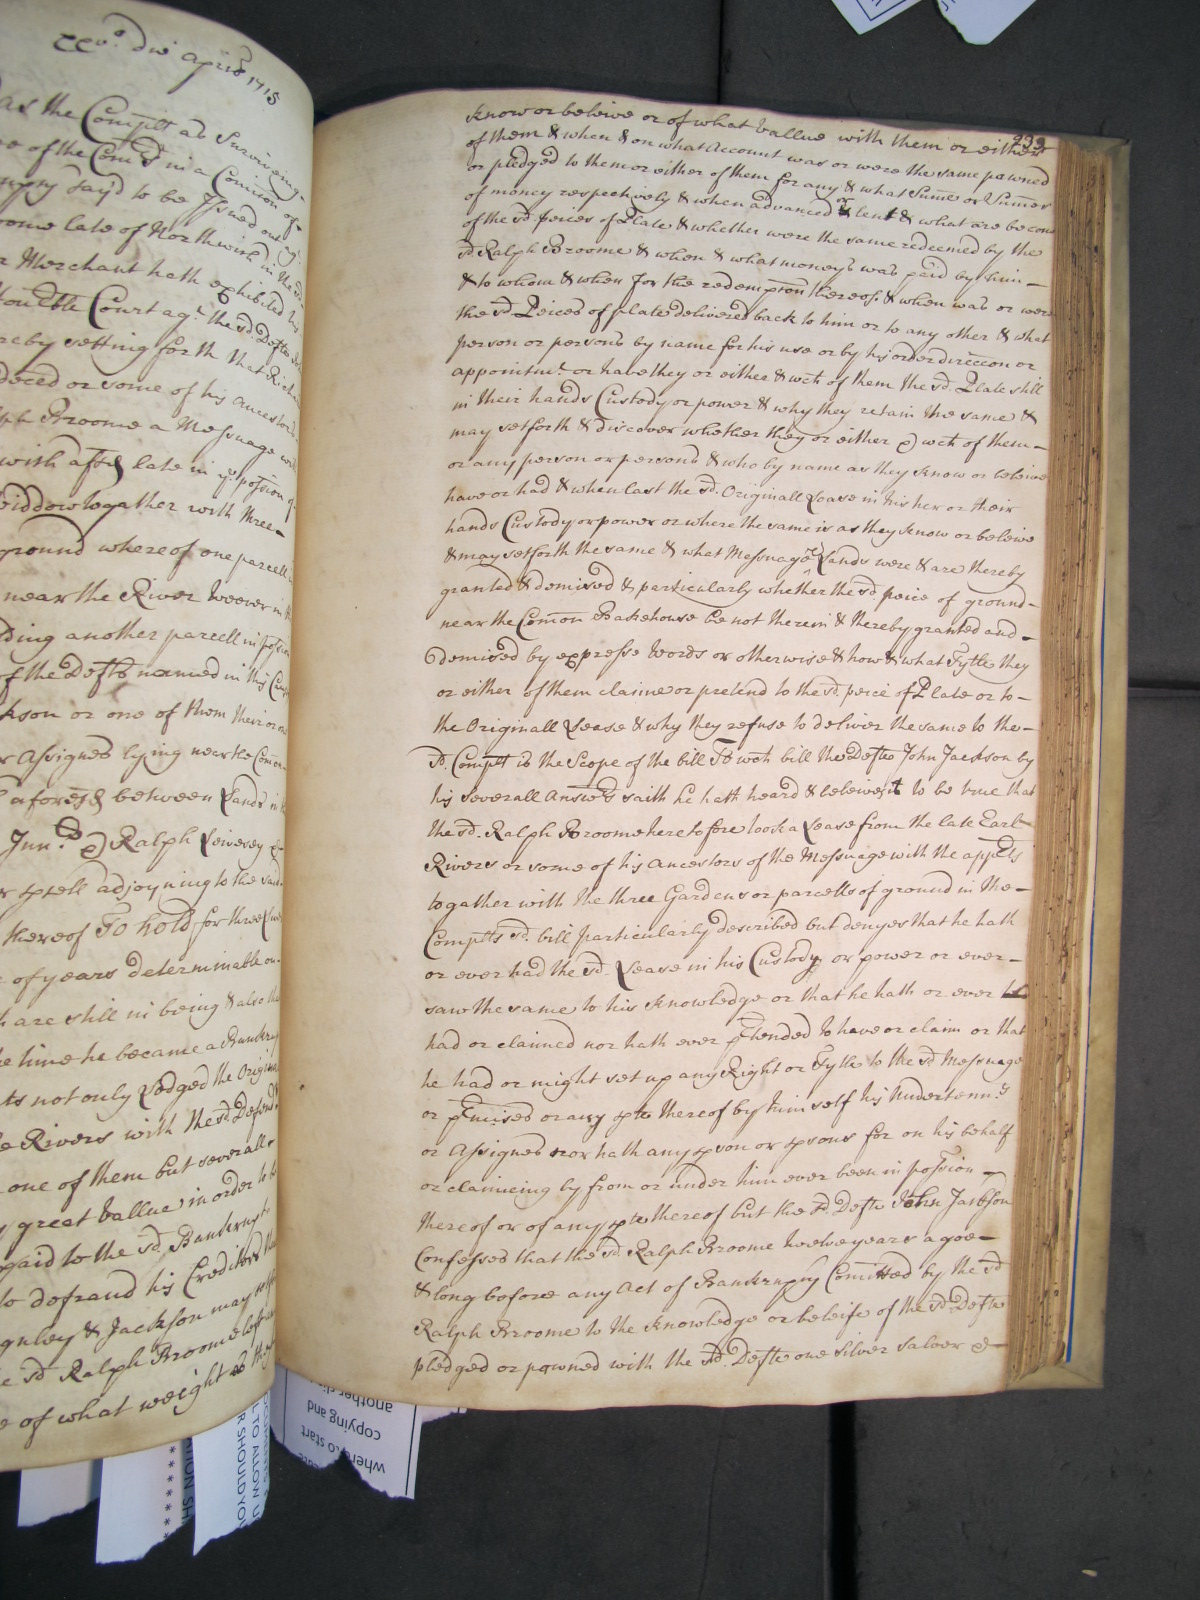 die April 1715
as the Complt as Surviveing
of the Com in a Comicon of
said to be Issued out ag
Broome late of Northwich in the
Merchant hath exhibited his
Court agt the sd. Defts
setting forth that
or some of his Ancestors
Broome a Messuage
with late in ye possion
Widdow together with three
ground whereof one parcell
near the River Weever in
another parcell in possion
of the Defts named in this
Jackson or one of them their or
Assignes lying near the Comon
between Lands
Junr. & Ralph Leivesey
adjoyning to the
thereof To hold for three Lives
of years determinable on
are still in being & also
time he became a Bankrupt
not only Lodged the Originall
Rivers with the sd. Defend
one of them but severall
great vallue in order to
paid to the sd. Bankrupt
to defraud his Creditors
& Jackson may
sd. Ralph Broome left
of what weight as they
233
know or beleive or of what vallue with them or either
of them & when & on what Account was or were the same pawned
or pledged to them or either of them for any & what Sume or Sumes
of money respectively & when advanced or lent & what are become
of the sd. peices of Plate & whether were the same redeemed by the
sd. Ralph Broome & when & what moneys was paid by him
& to whom & when for the redempcon thereof. & when was or were
the sd. Peices of plate delivered back to him or to any other & what
person or persons by name for his use or by his order direccon or
appointmt. or have they or either & wch of them the sd. Plate still
in their hands Custody or power & why they retain the same &
may setforth & discover whether they or either & wch of them
or any person or persons & who by name as they know or beleive
have or had & when last the sd. Originall Lease in his her or their
hands Custody or power or where the same is as they know or beleive
& may setforth the same & what Messuages Lands were & are thereby
granted & demised & particularly whether the sd. peice of ground
near the Comon Bakehouse be not therein & thereby granted and
demised by expresse words or otherwise & how & what Tytle they
or either of them claime or pretend to the sd. peice of Plate or to
the Originall Lease & why they refuse to deliver the same to the
sd. Complt is the Scope of the bill To wch bill the Defte John Jackson by
his severall Answers saith he hath heard & beleives it to be true that
the sd. Ralph Broome heretofore took a Lease from the late Earl
Rivers or some of his Ancestors of the Messuage with the appts
together with the three Gardens or parcells of ground in the
Complts sd. bill particularly described but denyes that he hath
or ever had the sd. Lease in his Custody or power or ever
saw the same to his knowledge or that he hath or ever
had or claimed nor hath ever ptended to have or claim or that
he had or might set up any Right or Tytle to the sd. Messuage
or pmised or any pte thereof by himself his Undertennts
or Assignes nor hath any pson or psons for on his behalf
or claimeing by from or under him ever been in possion
thereof or of any pte thereof but the sd. Defte John Jackson
Confessed that the sd. Ralph Broome twelve years agoe
& long before any Act of Bankruptcy Comitted by the sd
Ralph Broome to the knowledge or beleife of the sd. Defte
pledged or pawned with the sd. Defte one silver salver &
where to start
copying and
another